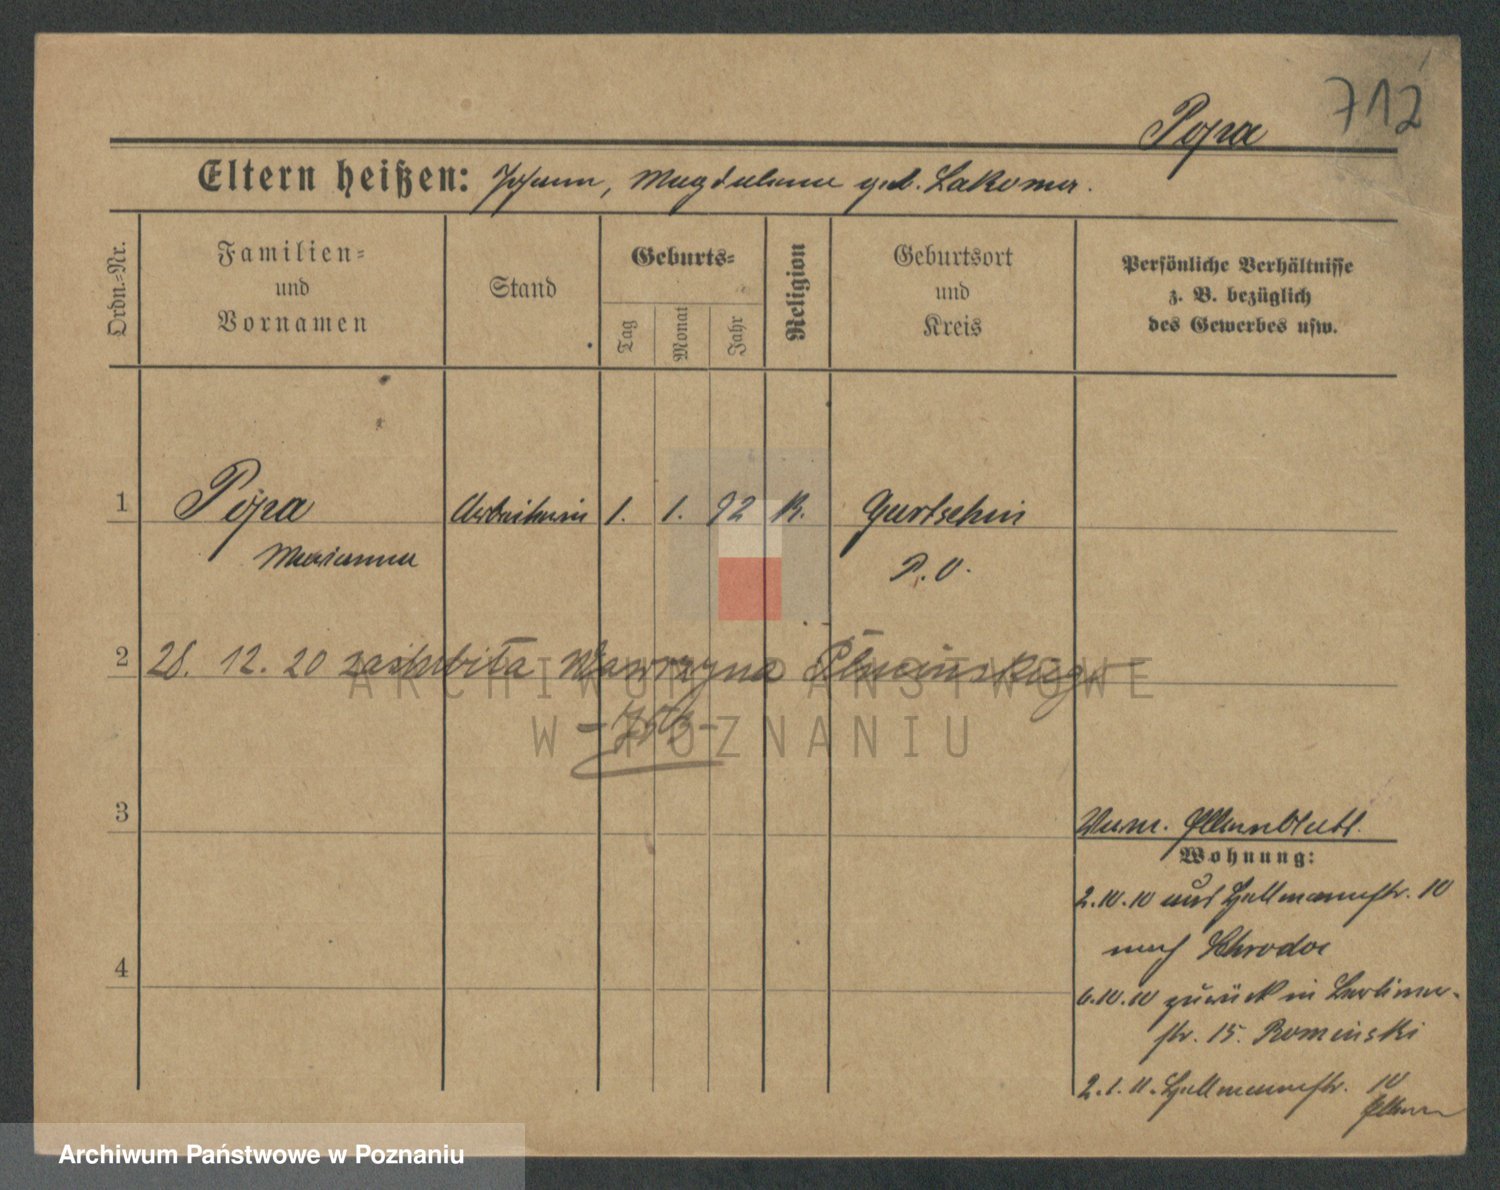 712
Popa
Eltern heißen: Johann, Magdalena geb. Lakoma.
Ordn.=Nr.
Familien=
und
Vornamen
Stand
Geburts=
Tag
Monat
Jahr
Religion
Geburtsort
und
Kreis
Persönliche Verhältnisse
z. B. bezüglich
des Gewerbes usw.
1 Popa Arbeiterin 1. 1. 92 K. Gurtschin
Marianna P. O.
2 28. 12. 20 zaślubiła Wawrzyna
ARCHIWUM PAŃSTWOWE
W POZNANIU
3
Elternblatt.
Wohnung:
2.10.10 aus Hellmannstr. 10
nach Schroda
6.10.10 zurück in Berliner-
str. 15. Rominski
4
2.1.11. Hellmannstr. 10
Eltern
Archiwum Państwowe w Poznaniu